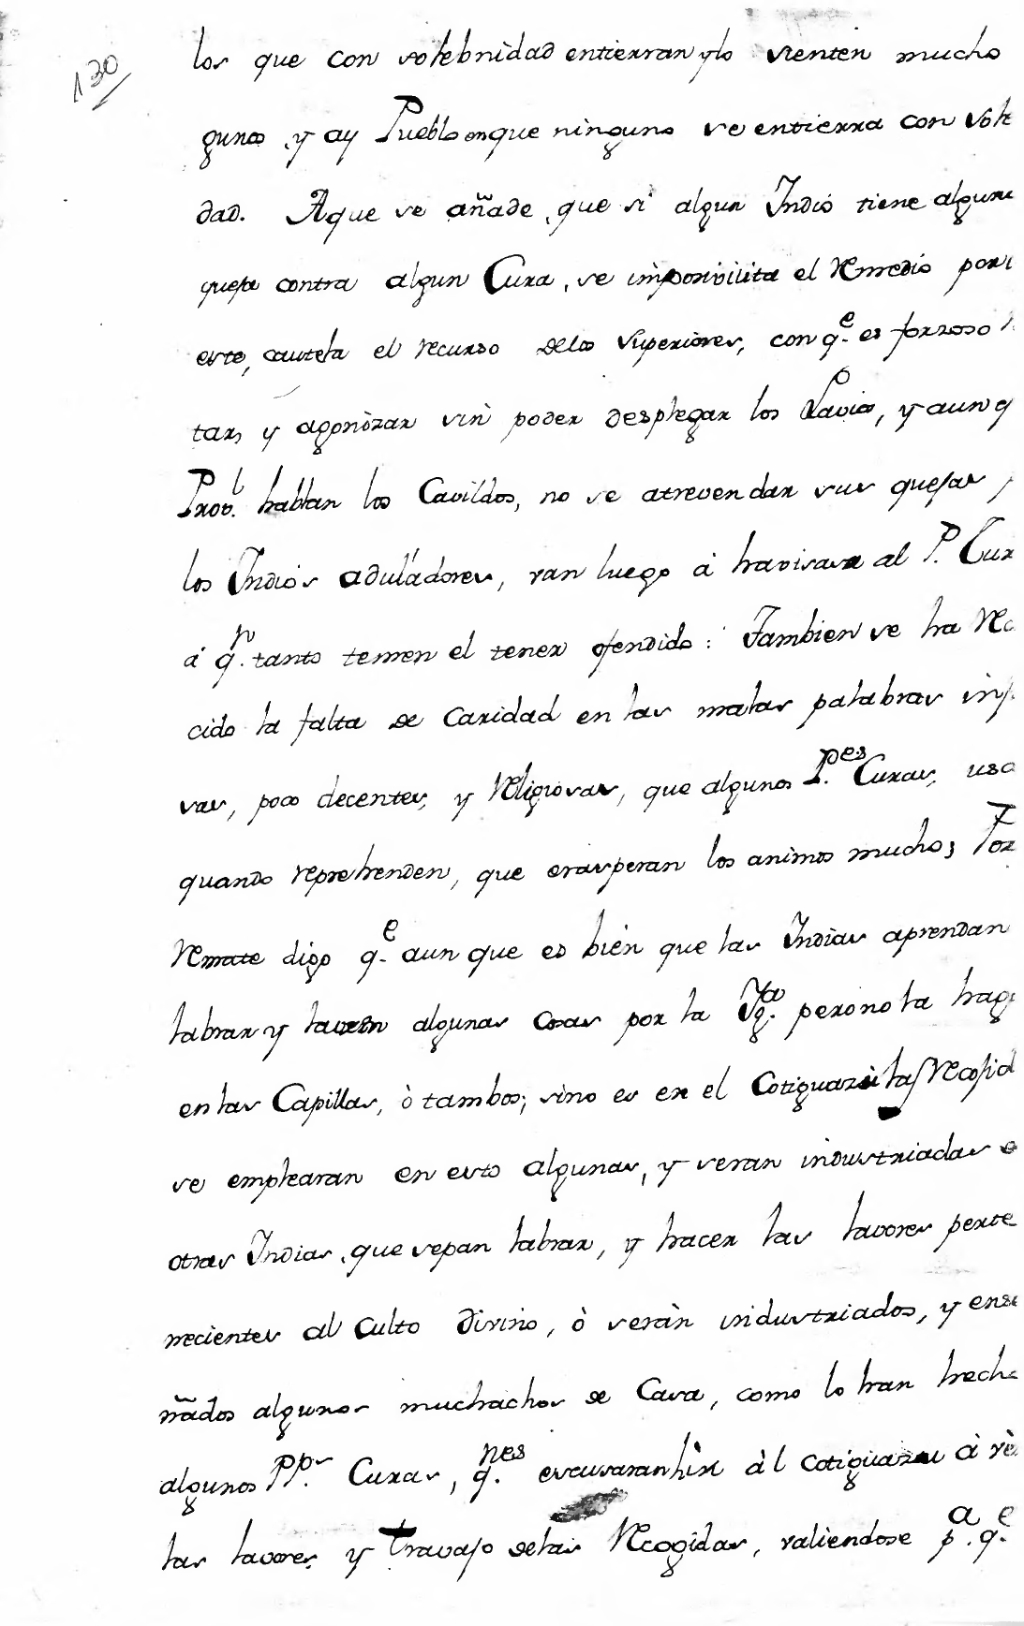 130
los que con solebnidad entierran y lo sienten mucho
gunos y ay Pueblo en que ninguno se entierra con sole
dad. Aque se añade, que si algun Indio tiene alguna
quexa contra algun Cura, se imposivilita el Remedio por
este, cautela el recurso delos Superiores, con q.e es forzoso
tar, y agonizar sin poder desplegar los Lavios, y aun q
Prov.l hablan los Cavildos, no se atreven dar sus quejas
los Indios aduladores, van luego à havisara al P. Cur
à q.n tanto temen el tener ofendido: Tambien se ha Re
cido la falta de Caridad en las malas palabras inj
sas, poco decentes, y Religiosas, que algunos P.es Curas, usa
quando reprehenden, que exasperan los animos mucho; Por
Remate digo q.e aun que es bien que las Indias aprendan
labrar y laven algunas cosas por la Yg.a pero no la hag
en las Capillas, ò tambos; sino es en el Cotiguazù las Recojid
se emplearan en esto algunas, y seran industriadas
otras Indias, que sepan labrar, y hacer las lavores perte
necientes al Culto Divino, ò seràn industriados, y ense
ñados algunos muchachos de Casa, como lo han hecho
algunos PP.s Curas, q.nes escusaran hir àl cotiguazu à vè
las lavores, y travajo delas Recogidas, valiendose p.a q.e